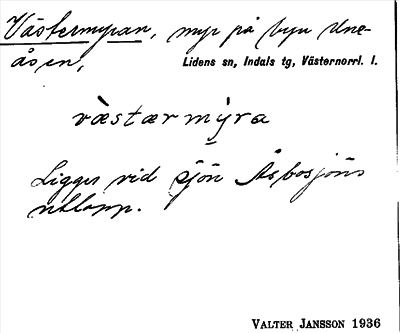 Västermyran, myr på byn Une-
åsen,
Lidens sn, Indals tg, Västernorrl. l.
västærmýra
Ligger vid sjön Åsbosjöns
utlopp.
VALTER JANSSON 1936